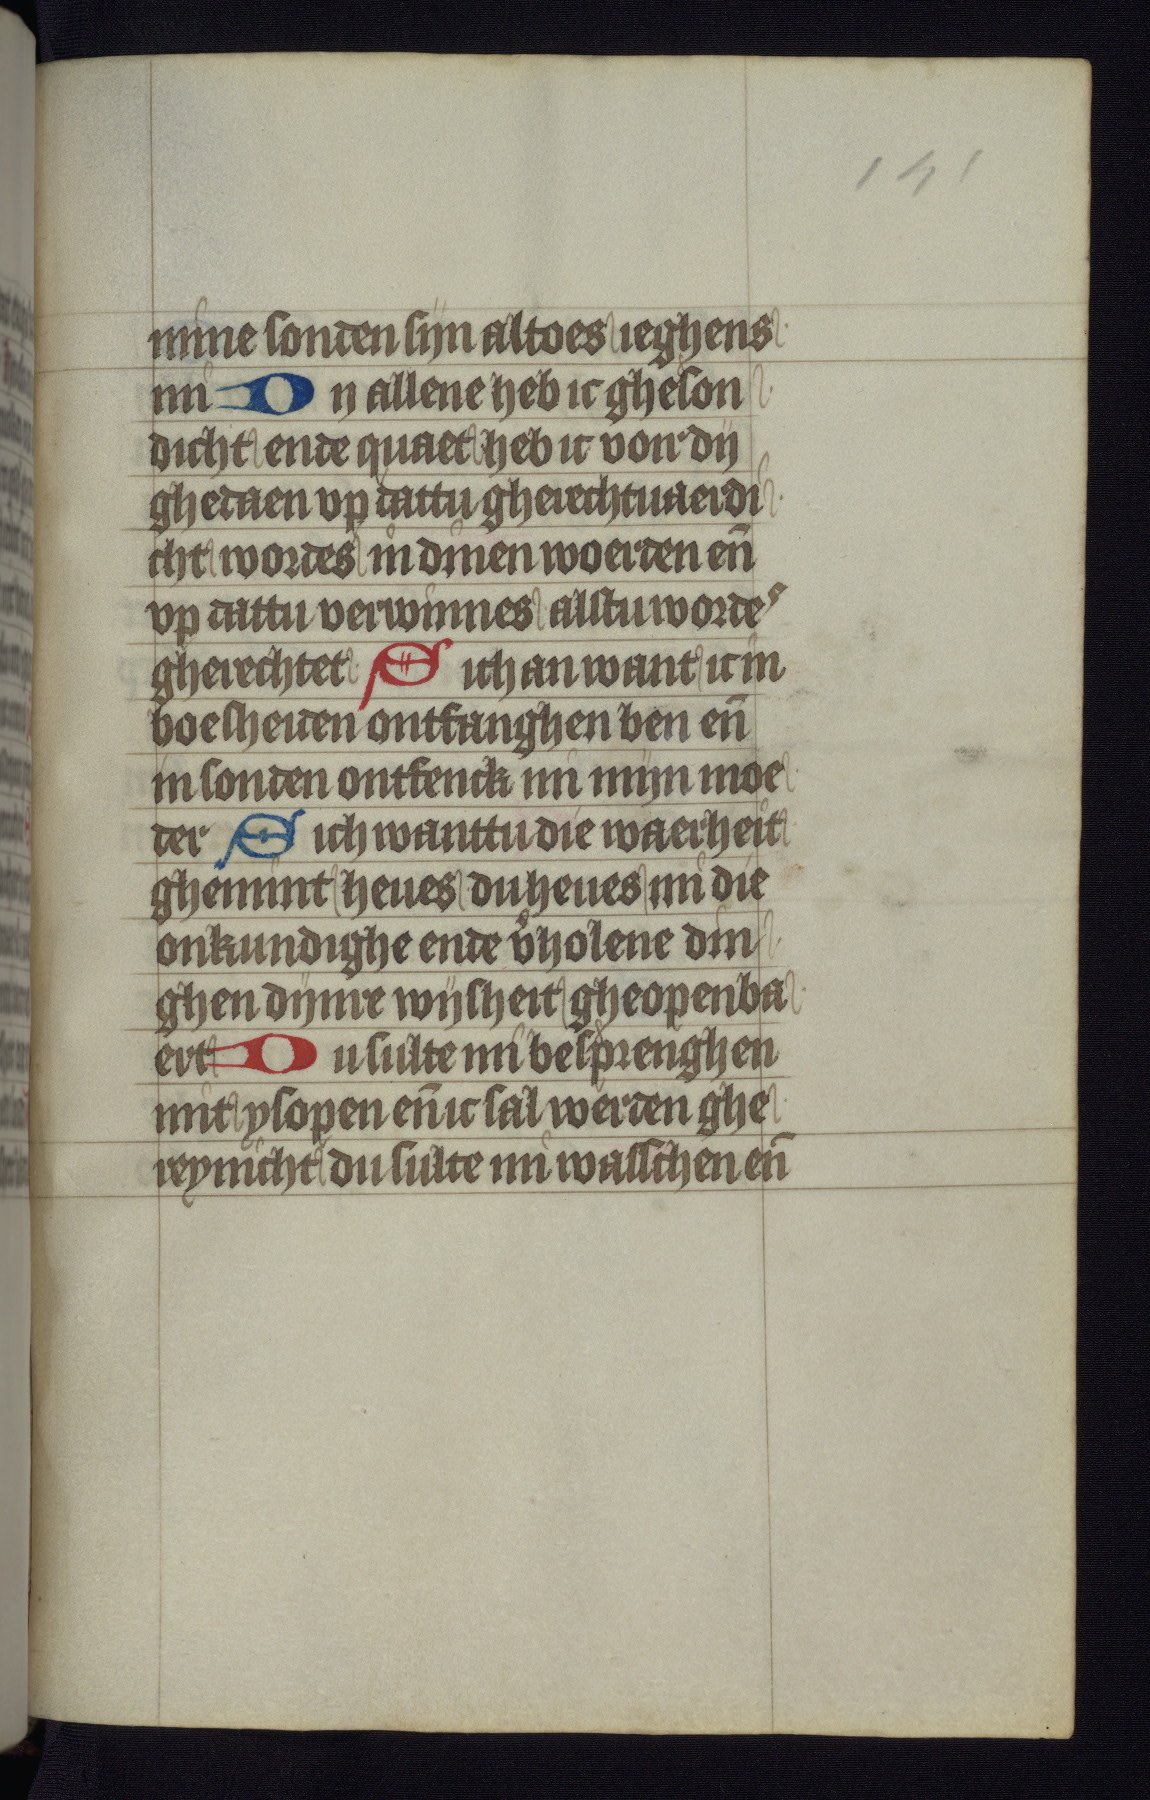 141
mine sonden sijn altoes ieghens
mi Dy allene heb ic gheson
dicht ende quaet heb ic voir dij
ghedaen vp dattu gherechtuaerdi
cht wordes in dinen woerden en̄
vp dattu verwinnes alstu wordes
gherechtet Sich an want ic in
boesheiden ontfanghen ben en̄
in sonden ontfenck mi mijn moe
der Sich wanttu die waerheit
ghemint heues du heues mi die
onkundighe ende v̓holene din
ghen dijnre wijsheit gheopenba
ert Du sulte mi besprenghen
mit ysopen en̄ ic sal werden ghe
reynicht du sulte mi wasschen en̄